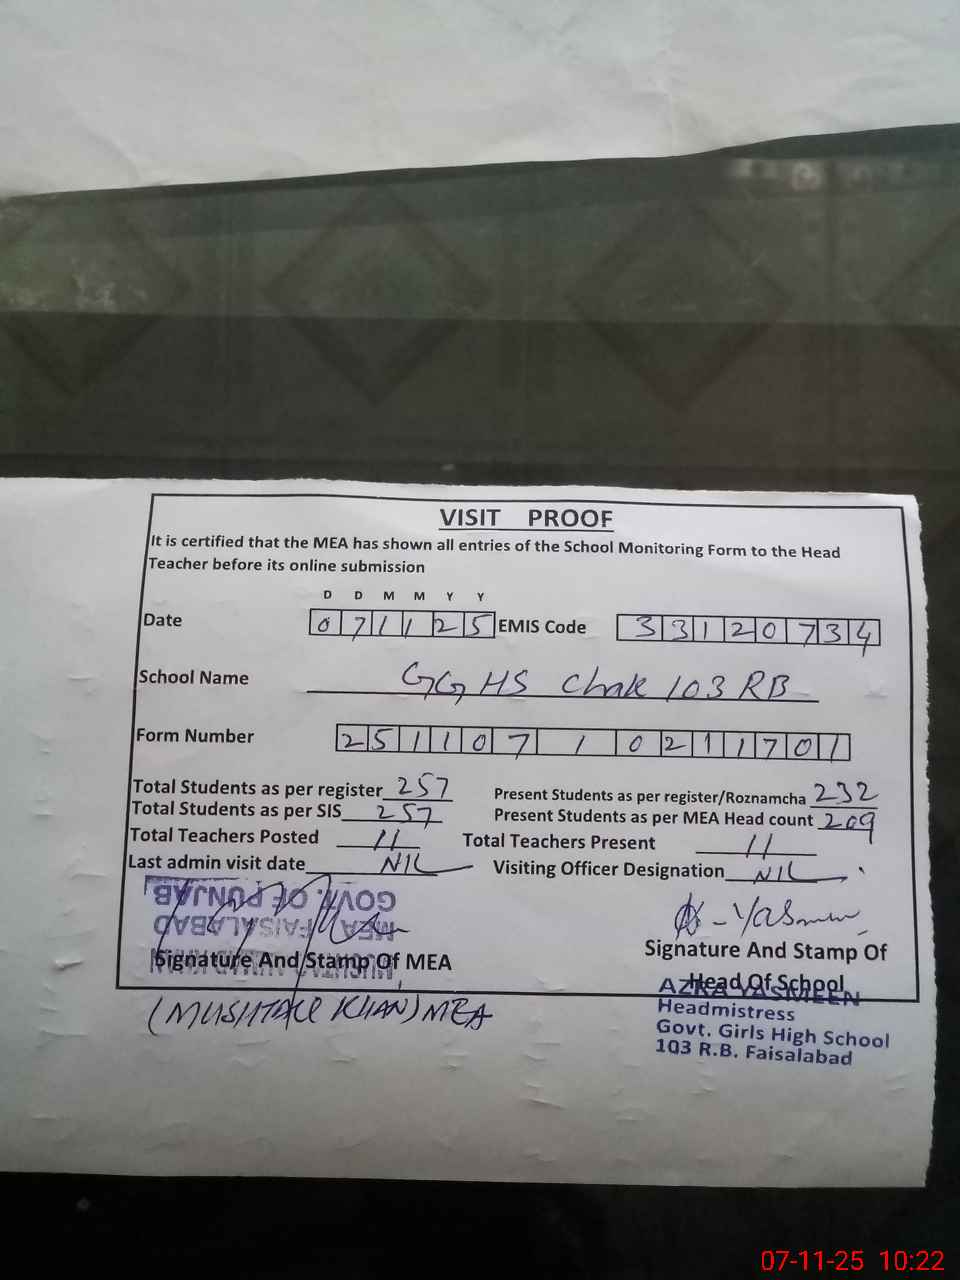 VISIT PROOF
It is certified that the MEA has shown all entries of the School Monitoring Form to the Head
Teacher before its online submission
D D M M Y Y
Date 0 7 1 1 2 5 EMIS Code 3 3 1 2 0 7 3 4
School Name GGHS Chak 103 RB
Form Number 2 5 1 1 0 7 1 0 2 1 1 7 0 1
Total Students as per register 257 Present Students as per register/Roznamcha 232
Total Students as per SIS 257 Present Students as per MEA Head count 209
Total Teachers Posted 11 Total Teachers Present 11
Last admin visit date NIL Visiting Officer Designation NIL
GOVT. OF PUNJAB
MEA FAISALABAD
A-Yasmeen
Signature And Stamp Of MEA Signature And Stamp Of
Head Of School
(MUSHTAQ KHAN) MEA
AZRA YASMEEN
Headmistress
Govt. Girls High School
103 R.B. Faisalabad
07-11-25 10:22